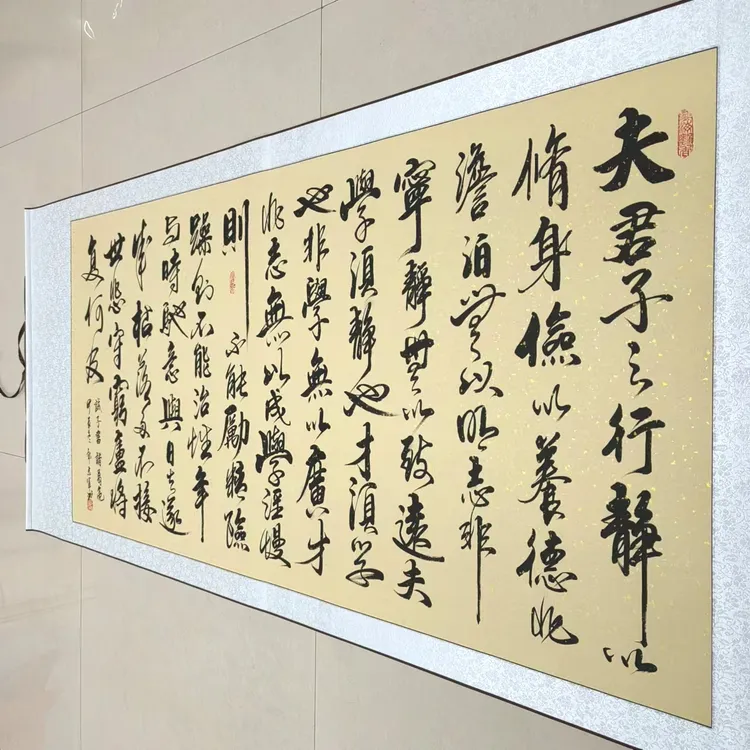 夫君子之行靜以
脩身儉以養德非
澹泊無以明志非
寧靜無以致遠夫
學須靜也才須學
也非學無以廣才
非志無以成學淫慢
則不能勵精險
躁則不能治性年
与時馳意與日去遂
成枯落多不接
世悲守窮廬將
復何及
誡子書 諸葛亮